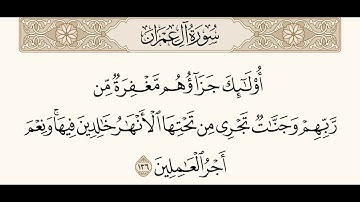 سُورَةُ آلِ عِمْرَانَ
أُوْلَـٰٓئِكَ جَزَآؤُهُم مَّغْفِرَةٌ مِّن
رَّبِّهِمْ وَجَنَّـٰتٌ تَجْرِى مِن تَحْتِهَا ٱلْأَنْهَـٰرُ خَـٰلِدِينَ فِيهَا ۚ وَنِعْمَ
أَجْرُ ٱلْعَـٰمِلِينَ ١٣٦